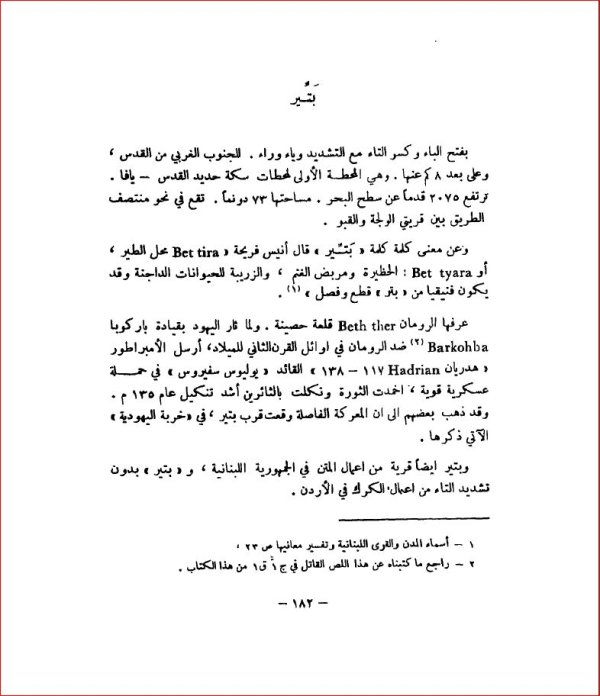 بَتِّير
بفتح الباء وكسر التاء مع التشديد وياء وراء . للجنوب الغربي من القدس ،
وعلى بعد ٨ كم عنها . وهي المحطة الأولى لمحطات سكة حديد القدس – يافا .
ترتفع ٢٠٧٥ قدماً عن سطح البحر . مساحتها ٧٣ دونماً . تقع في نحو منتصف
الطريق بين قريتي الولجة والقبو .
وعن معنى كلمة كلمة « بَتِّير » قال أنيس فريحة « Bet tira محل الطير ،
أو Bet tyara : الحظيرة ومربض الغنم ، والزريبة للحيوانات الداجنة وقد
يكون فنيقيا من « بتر » قطع وفصل » (١) .
عرفها الرومان Beth ther قلعة حصينة . ولما ثار اليهود بقيادة باركوبا
Barkohba (٢) ضد الرومان في اوائل القرن الثاني للميلاد، أرسل الأمبراطور
« هدريان Hadrian ١١٧ – ١٣٨ » القائد « يوليوس سفيروس » في حملة
عسكرية قوية ، اخمدت الثورة ونكلت بالثائرين أشد تنكيل عام ١٣٥ م .
وقد ذهب بعضهم الى ان المعركة الفاصلة وقعت قرب بتير ، في « خربة اليهودية »
الآتي ذكرها .
وبتير ايضاً قرية من اعمال المتن في الجمهورية اللبنانية ، و « بتير » بدون
تشديد التاء من اعمال الكرك في الأردن .
١ – أسماء المدن والقوى اللبنانية وتفسير معانيها ص ٢٣ ،
٢ – راجع ما كتبناه عن هذا اللص القاتل في ج ١ ق ١ من هذا الكتاب .
– ١٨٢ –